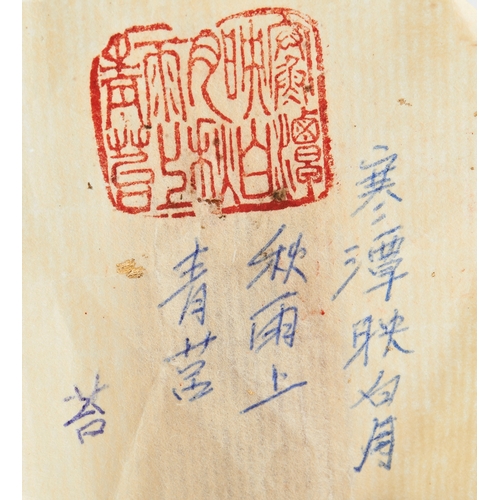 寒潭
映白
月秋
雨上
青苔
寒潭映白月
秋雨上
青莒
苔